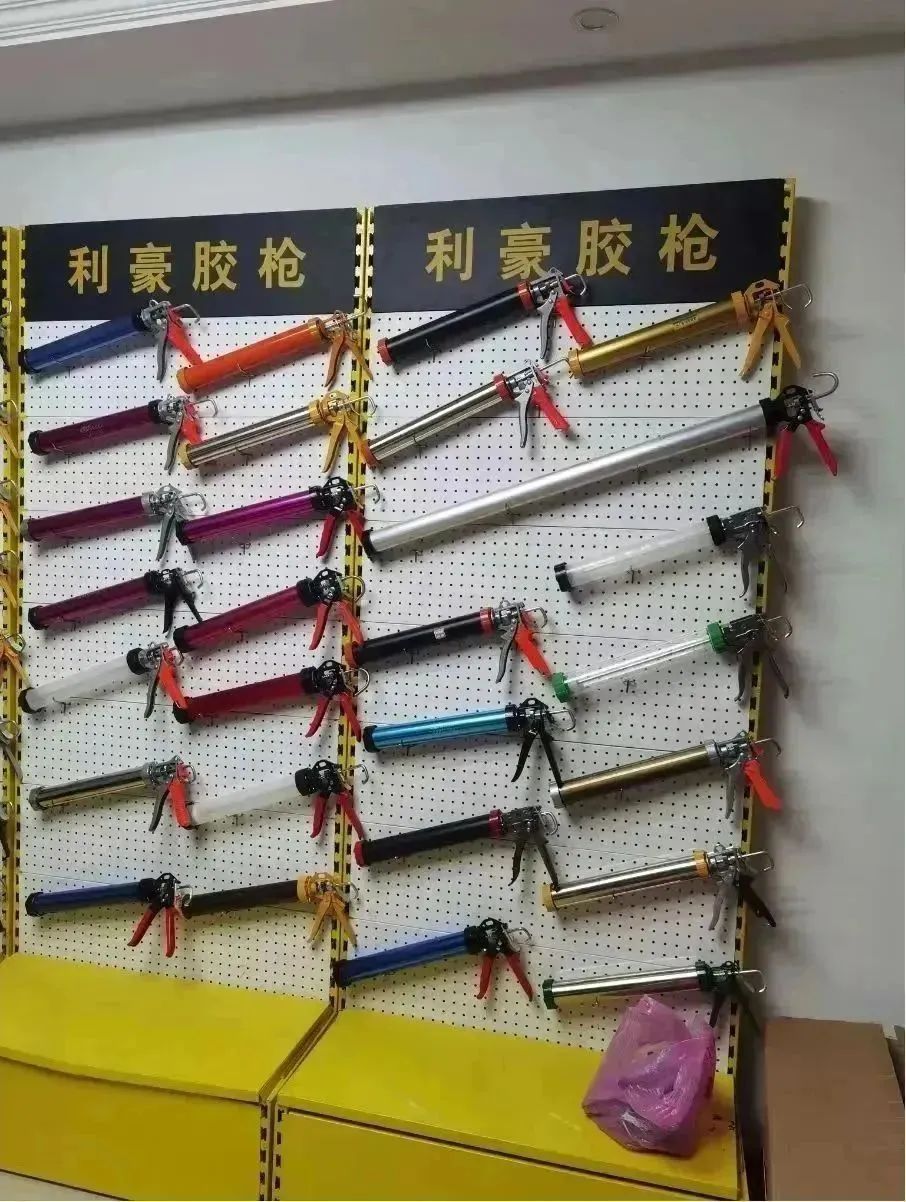 利豪胶枪
利豪胶枪